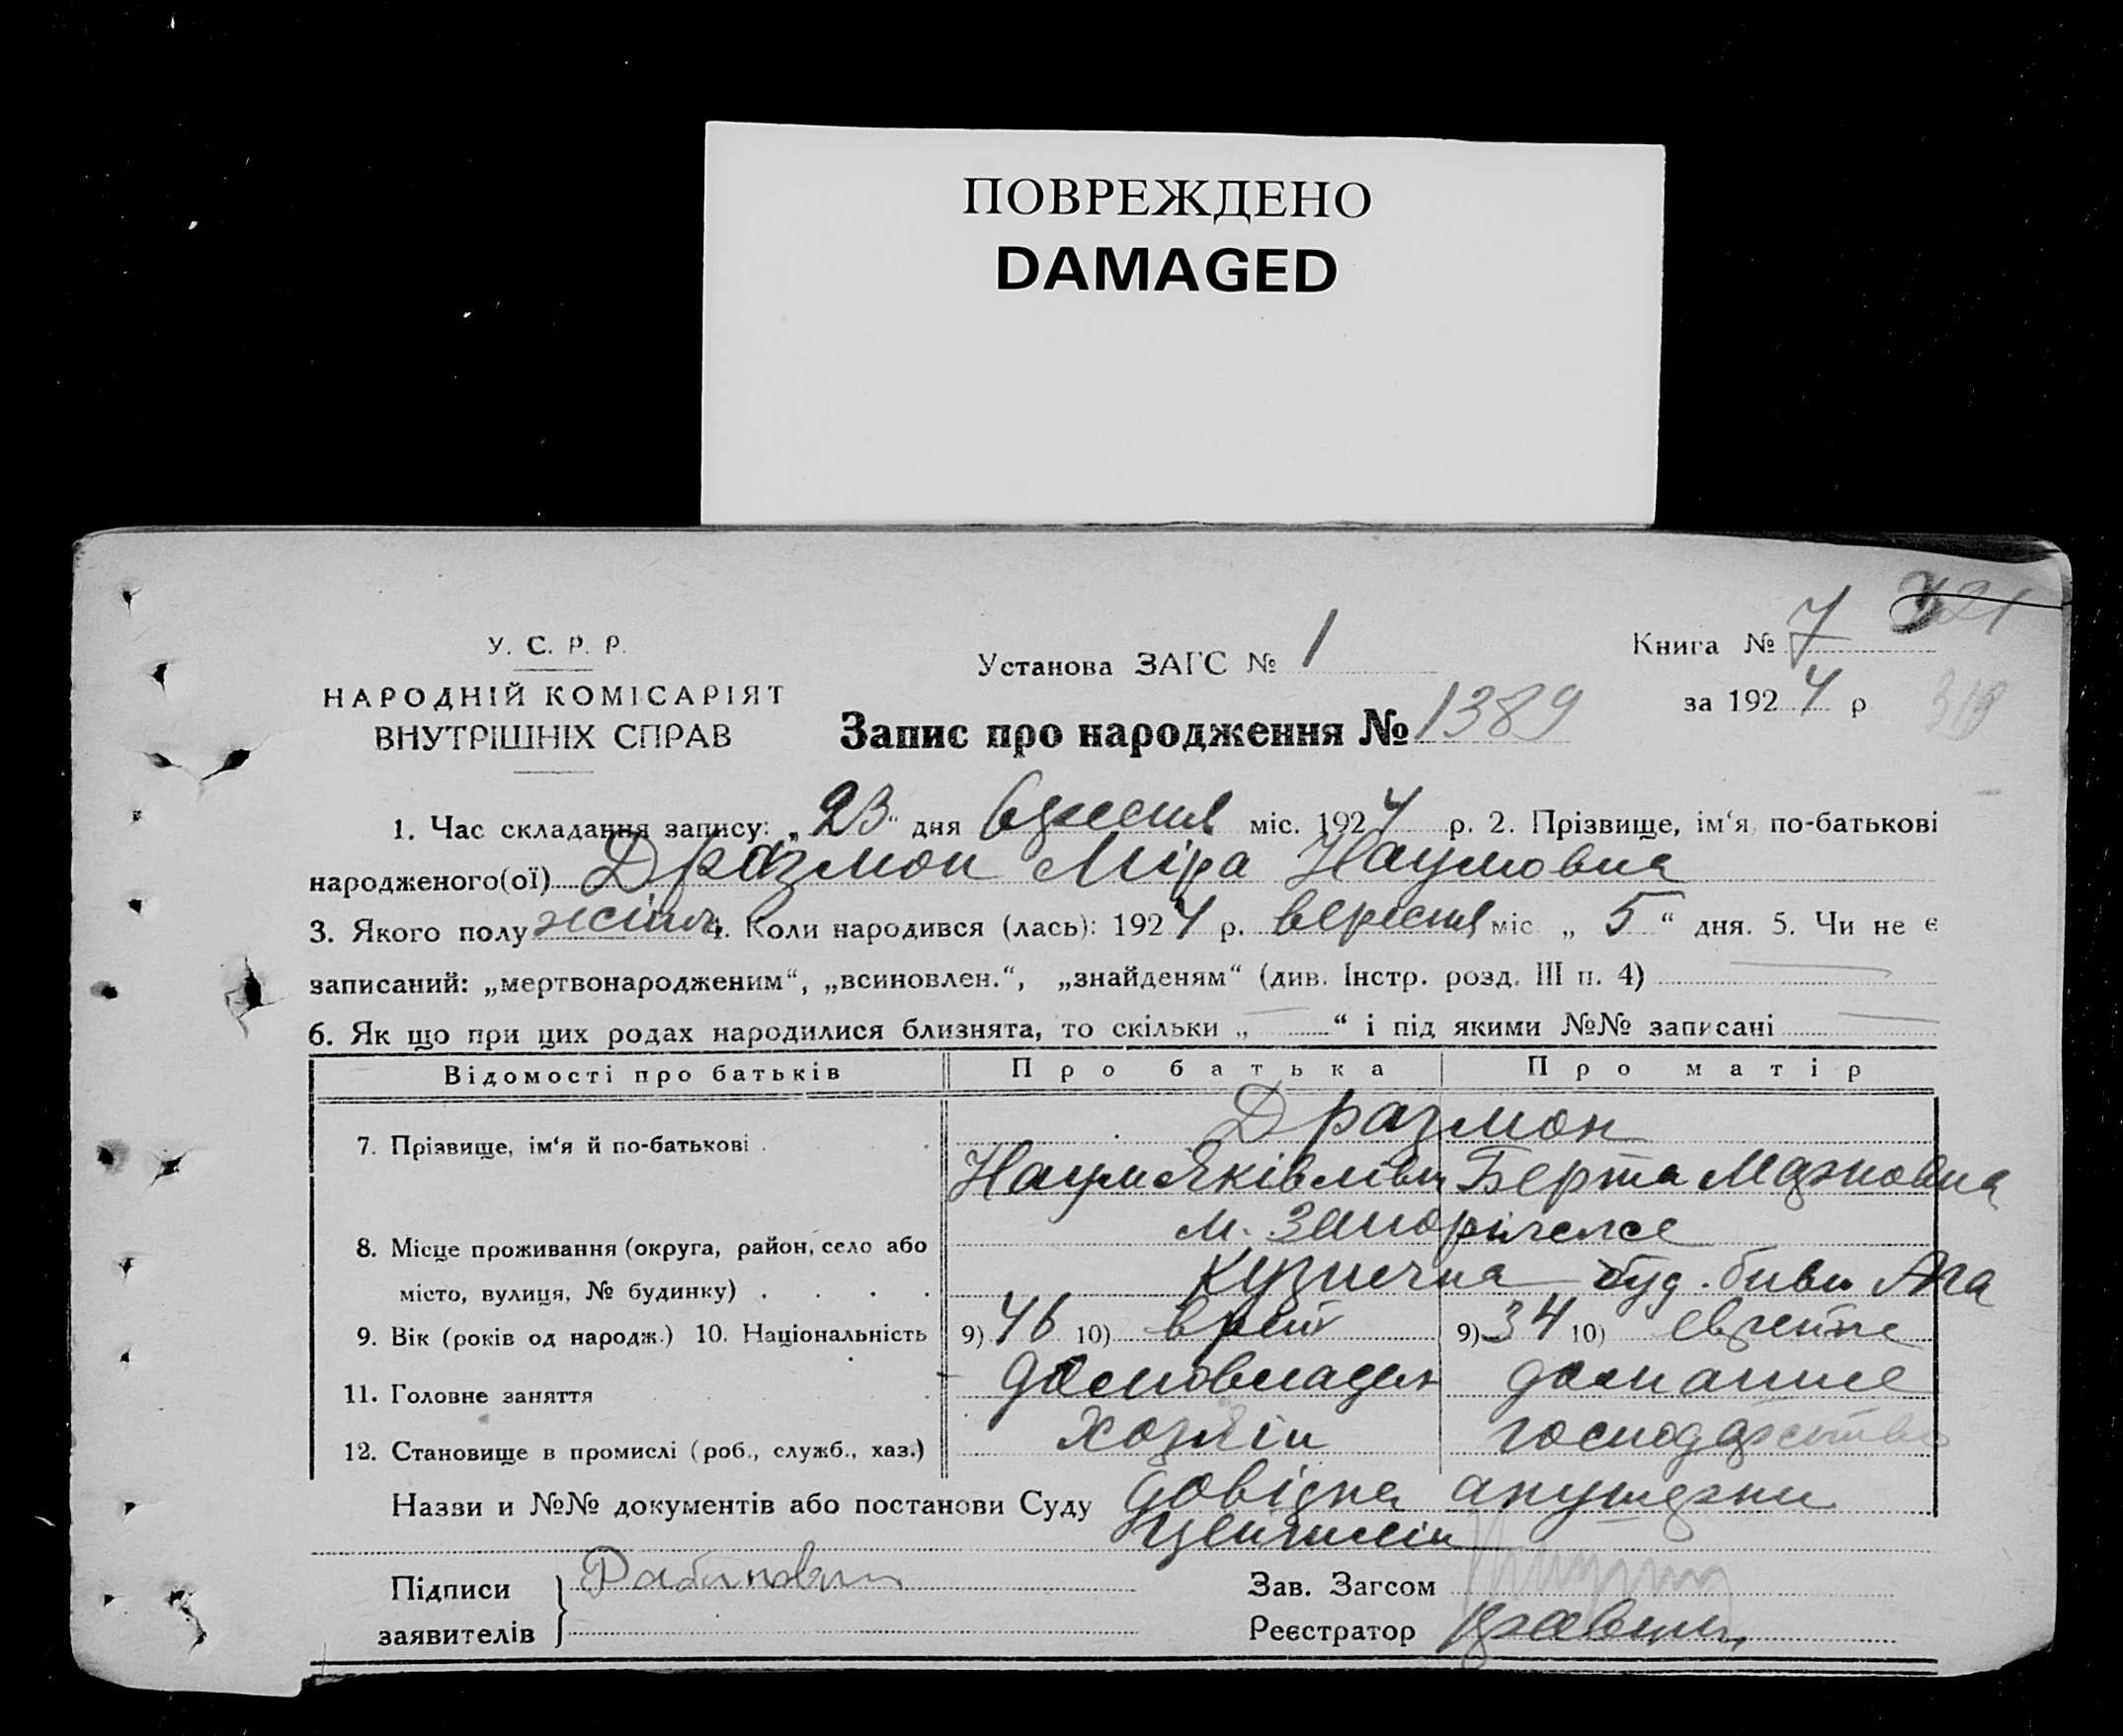 ПОВРЕЖДЕНО
DAMAGED
У. С. Р. Р.
НАРОДНІЙ КОМІСАРІЯТ
ВНУТРІШНІХ СПРАВ
Установа ЗАГС № 1
Книга № 7
за 1924 р
319
Запис про народження № 1389
1. Час складання запису: „23“ дня вересня міс. 1924 р. 2. Прізвище, ім‘я, по-батькові
народженого(ої) Дразмон Міра Наумовна
3. Якого полу жіноч. 4. Коли народився (лась): 1924 р. вересня міс „5“ дня. 5. Чи не є
записаний: „мертвонародженим“, „всиновлен.“, „знайденям“ (див. Інстр. розд. III п. 4)
6. Як що при цих родах народилися близнята, то скільки „ “ і під якими №№ записані
Відомості про батьків Про батька Про матір
7. Прізвище, ім‘я й по-батькові Дразмон
Наум Яківлевич Берта Марковна
8. Місце проживання (округа, район, село або м. Запоріжже
місто, вулиця, № будинку) Кузнечна буд. бивш
9. Вік (років од народж.) 10. Національність 9) 46 10) 9) 34 10)
11. Головне заняття домовладел домашнє
12. Становище в промислі (роб., служб., хаз.) хозяїн господарство
Назви и №№ документів або постанови Суду Довідка акушерки
Підписи
заявителів
Зав. Загсом
Реєстратор